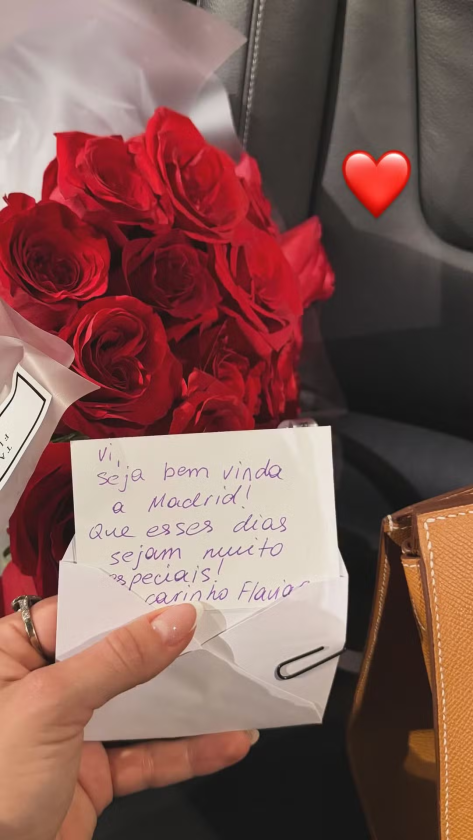 Vi,
seja bem vinda
a Madrid!
Que esses dias
sejam muito
especiais!
carinho Flavia